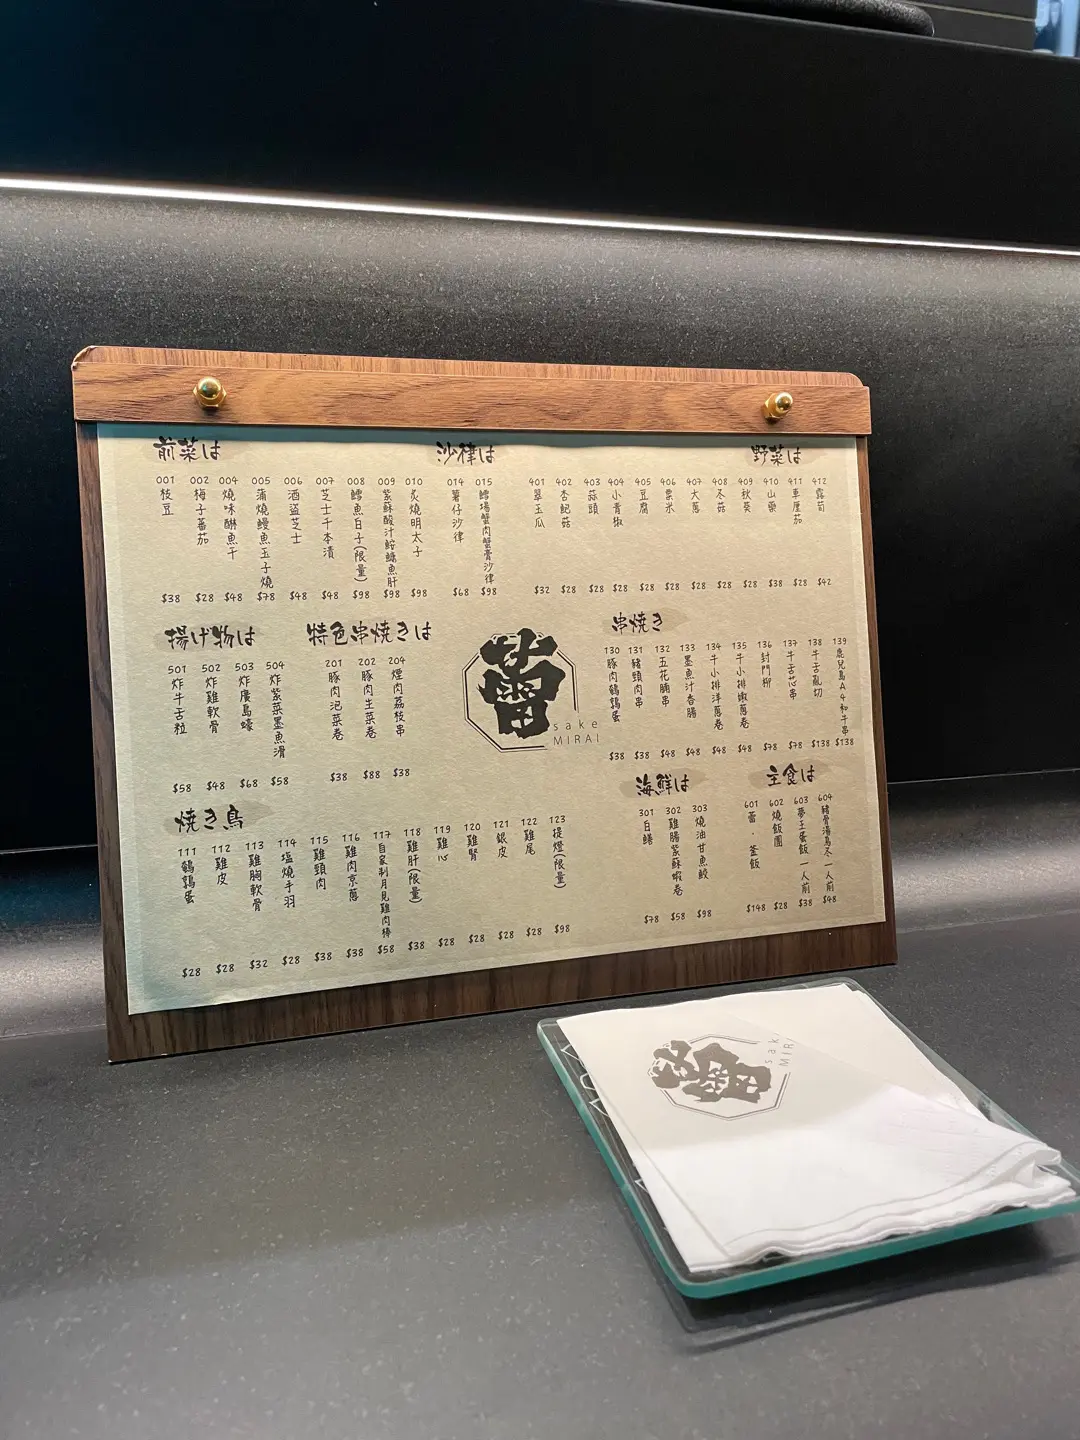 前菜は
001 枝豆 $38
002 梅子蕃茄 $28
004 燒味醂魚干 $48
005 蒲燒鰻魚玉子燒 $78
006 酒盜芝士 $48
007 芝士千本漬 $48
008 鱈魚白子(限量) $98
009 紫蘇酸汁鮟鱇魚肝 $98
010 炙燒明太子 $98
沙律は
014 薯仔沙律 $68
015 鱈場蟹肉蟹膏沙律 $98
野菜は
401 翠玉瓜 $32
402 杏鮑菇 $28
403 蒜頭 $28
404 小青椒 $28
405 豆腐 $28
406 粟米 $28
407 大蔥 $28
408 冬菇 $28
409 秋葵 $28
410 山藥 $38
411 車厘茄 $28
412 露筍 $42
揚げ物は
501 炸牛舌粒 $58
502 炸雞軟骨 $48
503 炸廣島蠔 $68
504 炸紫菜墨魚滑 $58
特色串焼きは
201 豚肉泡菜卷 $38
202 豚肉生菜卷 $88
204 煙肉荔枝串 $38
蕾
sake
MIRAI
串焼き
130 豚肉鵪鶉蛋 $38
131 豬頸肉串 $38
132 五花腩串 $48
133 墨魚汁香腸 $48
134 牛小排洋蔥卷 $48
135 牛小排嫩蔥卷 $48
136 封門柳 $78
137 牛舌芯串 $78
138 牛舌亂切 $138
139 鹿兒島A4和牛串 $138
焼き鳥
111 鵪鶉蛋 $28
112 雞皮 $28
113 雞胸軟骨 $32
114 塩燒手羽 $28
115 雞頸肉 $38
116 雞肉京蔥 $38
117 自家制月見雞肉棒 $58
118 雞肝(限量) $38
119 雞心 $28
120 雞腎 $28
121 銀皮 $28
122 雞尾 $28
123 提燈(限量) $98
海鮮は
301 白鱔 $78
302 雞腸紫蘇蝦卷 $58
303 燒油甘魚鮫 $98
主食は
601 蕾・釜飯 $148
602 燒飯團 $28
603 夢王蛋飯一人前 $38
604 豬骨湯烏冬一人前 $48
蕾
sak
MIRA